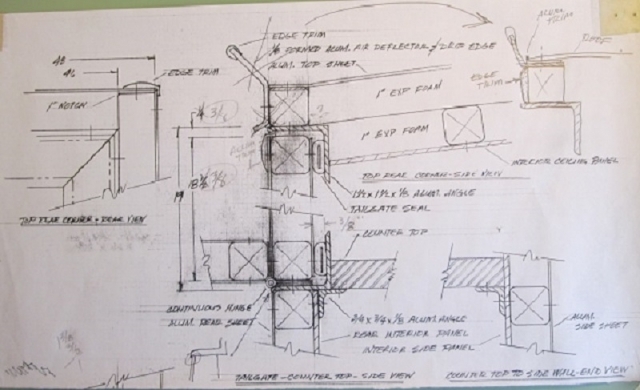 EDGE TRIM
1/8 FORMED ALUM. AIR DEFLECTOR & DRIP EDGE
ALUM. TOP SHEET
ALUM TRIM
ROOF
EDGE TRIM
48
46
EDGE TRIM
1" NOTCH
1" EXP FOAM
1" EXP FOAM
INTERIOR CEILING PANEL
TOP REAR CORNER - SIDE VIEW
1 1/2 x 1 1/2 x 1/8 ALUM. ANGLE
TAILGATE SEAL
19
TOP REAR CORNER - REAR VIEW
COUNTER TOP
CONTINUOUS HINGE
ALUM. REAR SHEET
ALUM. ANGLE
REAR INTERIOR PANEL
INTERIOR SIDE PANEL
ALUM. SIDE SHEET
TAILGATE - COUNTER TOP - SIDE VIEW
COUNTER TOP TO SIDE WALL - END VIEW